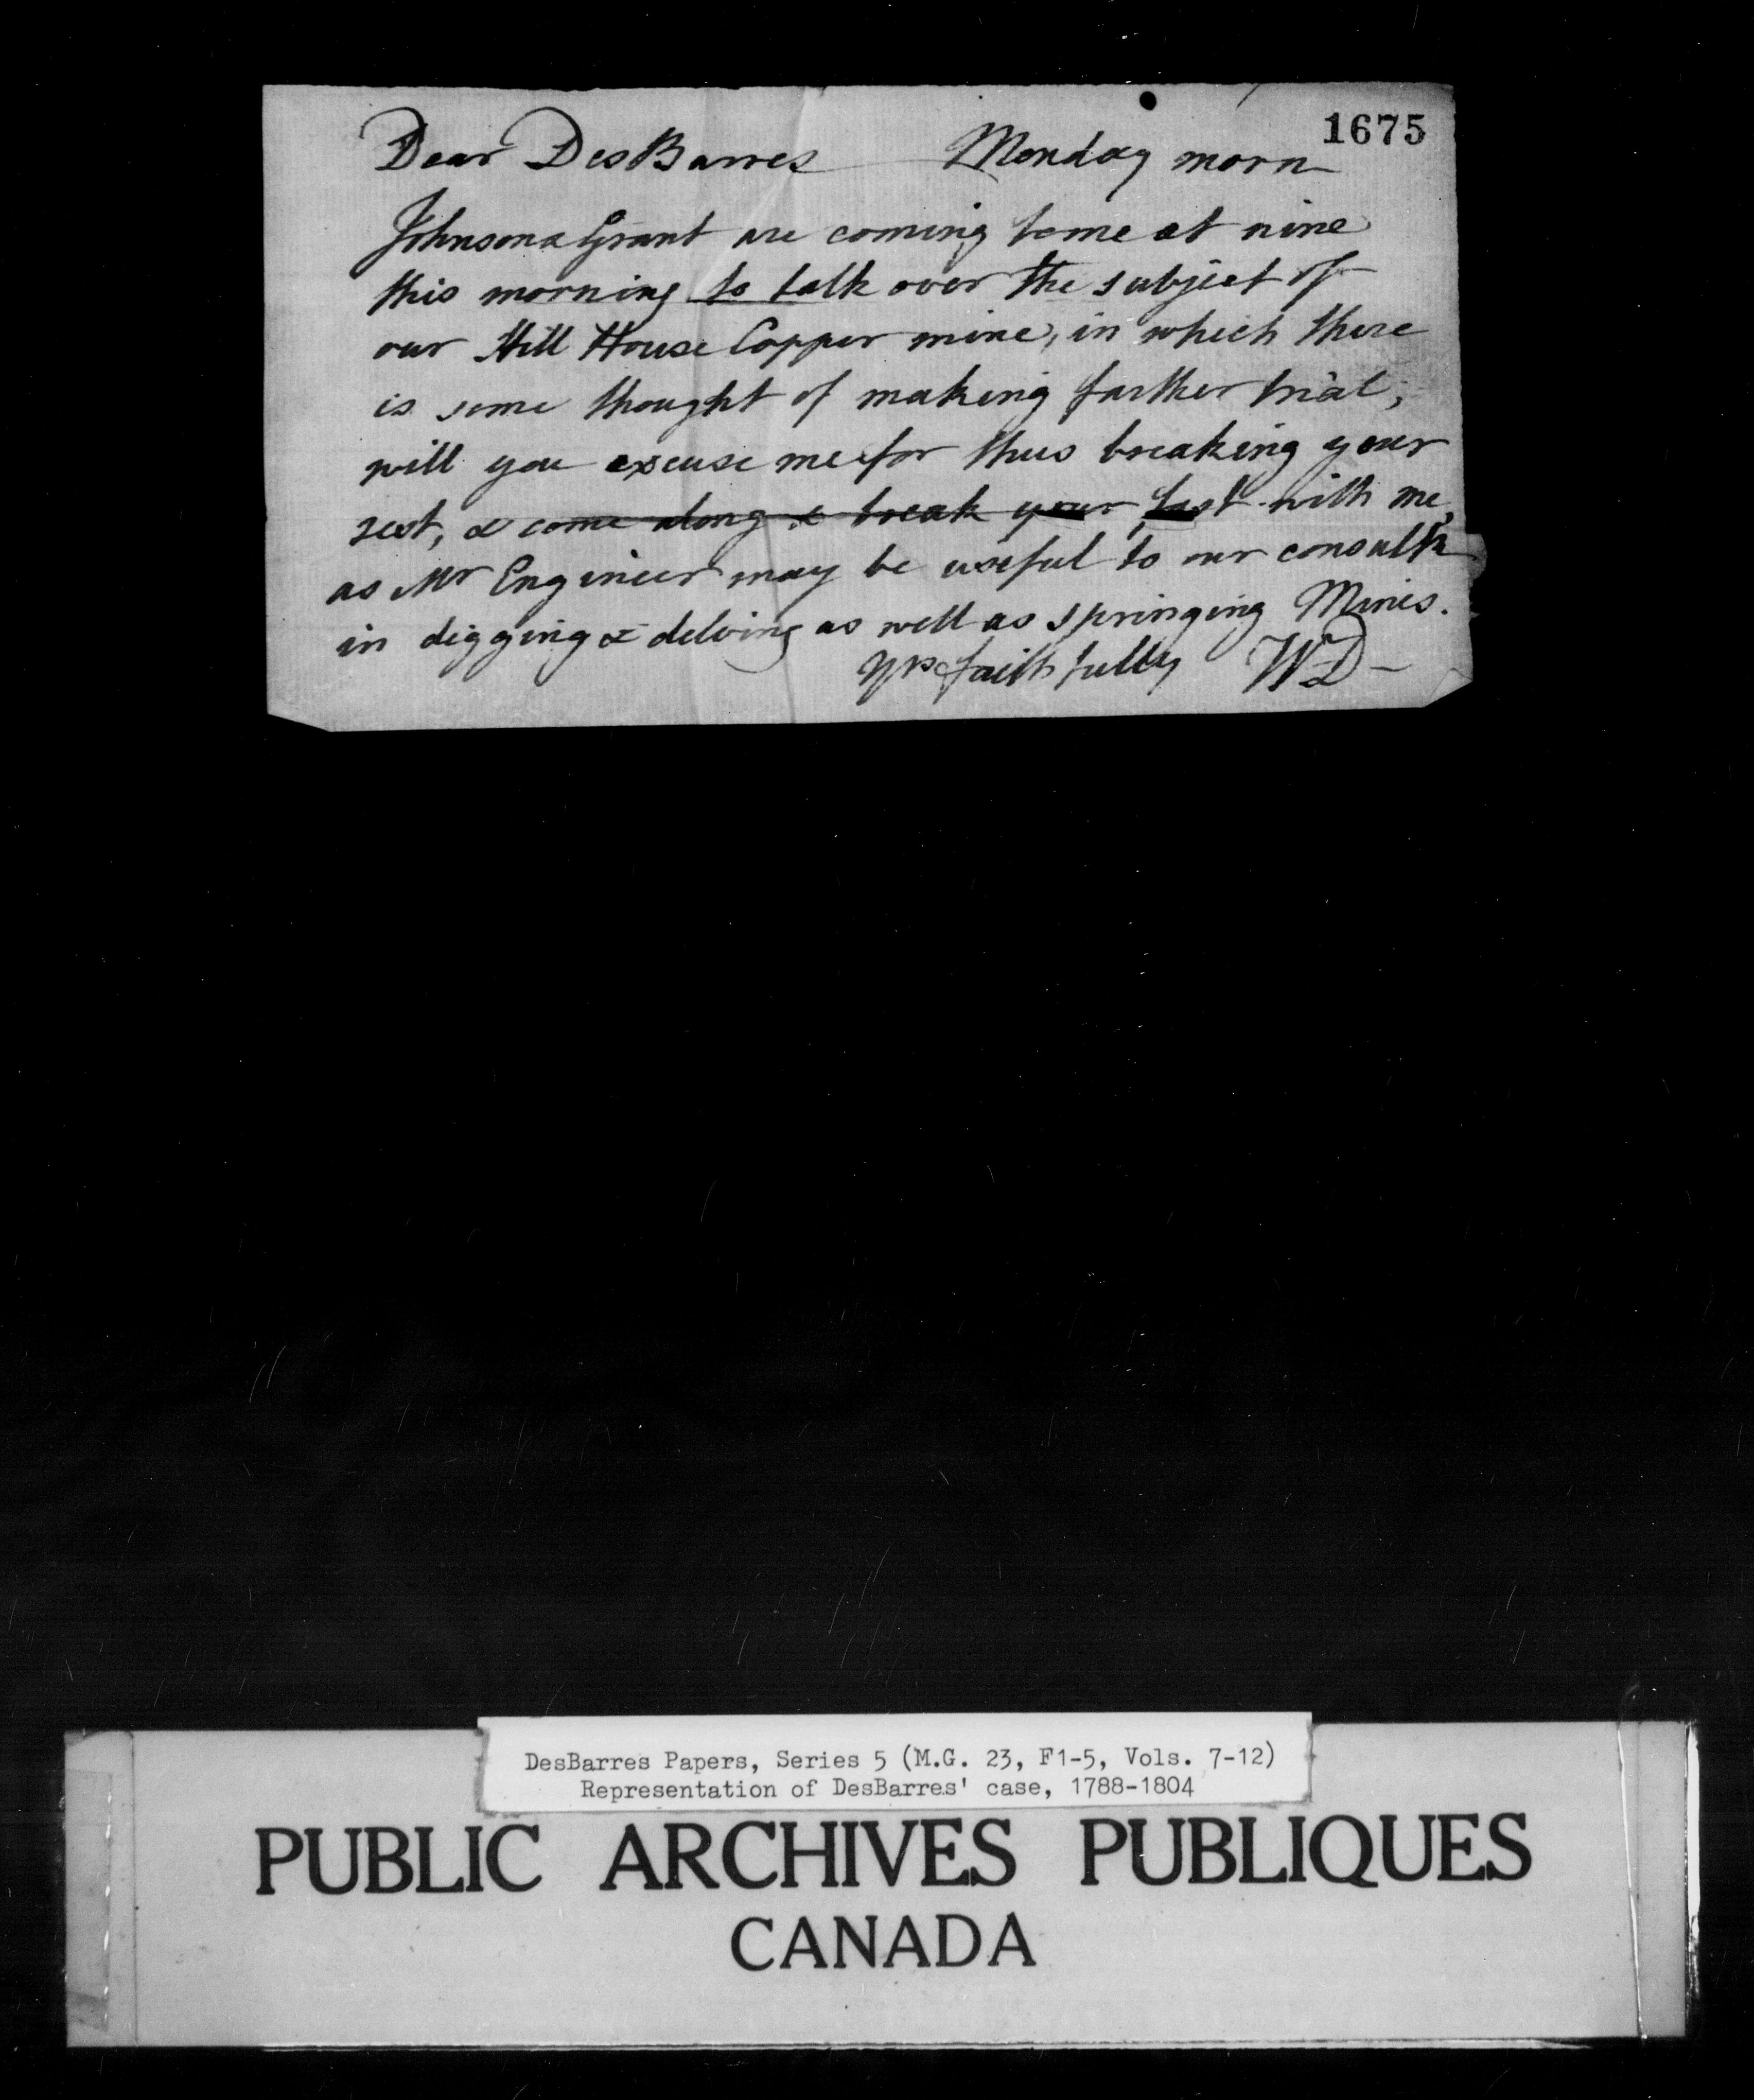 1675
Dear DesBarres Monday morn
Johnson & Grant are coming to me at nine
this morning to talk over the subject of
our Hill House Copper mine, in which there
is some thought of making farther trial;
will you excuse me for thus breaking your
rest, & come along & break your fast with me,
as Mr Engineer may be useful to our consultn
in digging & delving as well as springing Mines.
Yrs faithfully WD-
DesBarres Papers, Series 5 (M.G. 23, F1-5, Vols. 7-12)
Representation of DesBarres' case, 1788-1804
PUBLIC ARCHIVES PUBLIQUES
CANADA